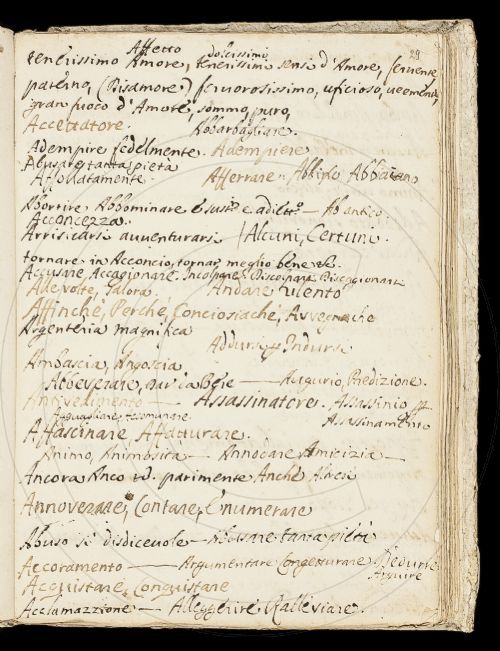 29
Affetto dolcissimi
tenerissimo Amore, tenerissimi sensi d'Amore, fervente
paterno, (Risamore) fervorosissimo, uficioso, veemente,
gran fuoco d'Amore, sommo, puro,
Accettatore. Abbarbagliare.
Adempire fedelmente. Adempiere
Abusare tanta pietà
Affollatamente Afferrare
Abortire. Abbominare — Ab antico
Acconcezza.
Arrisicarsi avventurarsi / Alcuni, Certuni.
tornare in Acconcio, tornar meglio bene
Accusare, Accagionare. Incolpare
Alle volte, Talora. Andare
Affinchè, Perchè, Conciosiachè, Avvegnache
Argenteria magnifica
Addursi Indursi
Ambascia, Angoscia
Abbeverare, — Augurio, Predizione.
Antivedimento — Assassinatore. Assassinio
Agguagliare Assassinamento
Affascinare, Affatturare.
Animo, Animosità — Annodare Amicizia —
Ancora Anco parimente Anche Altresì
Annoverare, Contare, Enumerare
Abuso sì disdicevole — Abusare tanta pietà
Accoramento — Argumentare Congetturare Dedurre
Arguire
Acquistare, Conquistare
Acclamazzione — Alleggerire Ralleviare.